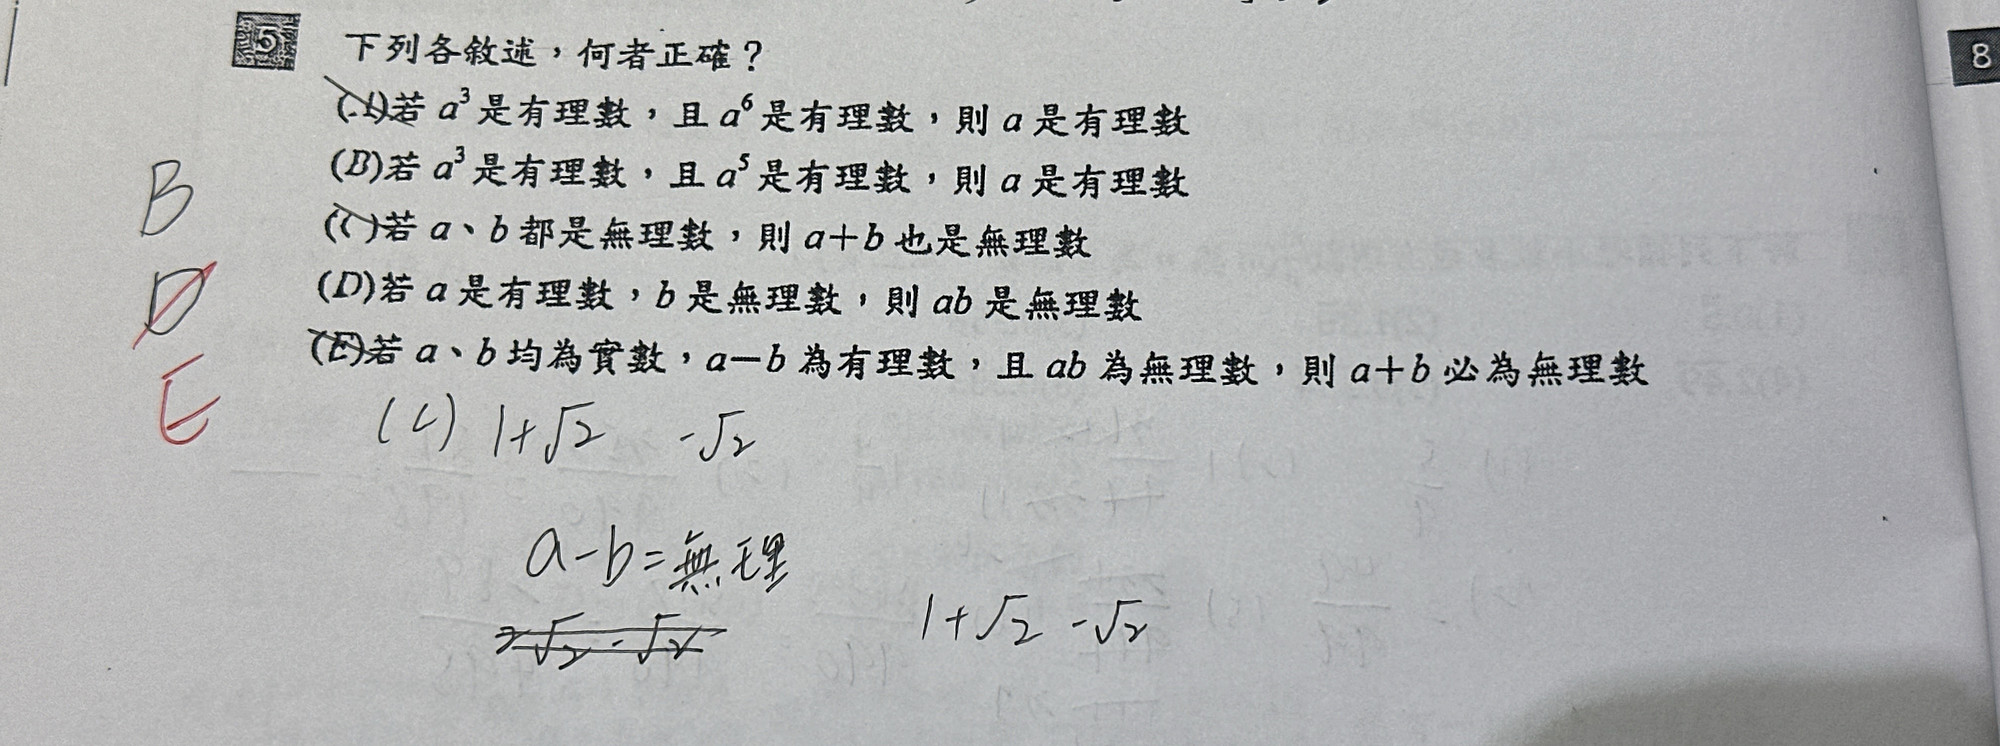 5 下列各敘述，何者正確？
8
(A)若 a³ 是有理數，且 a⁶ 是有理數，則 a 是有理數
(B)若 a³ 是有理數，且 a⁵ 是有理數，則 a 是有理數
B
(C)若 a、b 都是無理數，則 a＋b 也是無理數
D
(D)若 a 是有理數，b 是無理數，則 ab 是無理數
(E)若 a、b 均為實數，a－b 為有理數，且 ab 為無理數，則 a＋b 必為無理數
E
(C) 1+√2 -√2
a-b=無理
1+√2 -√2